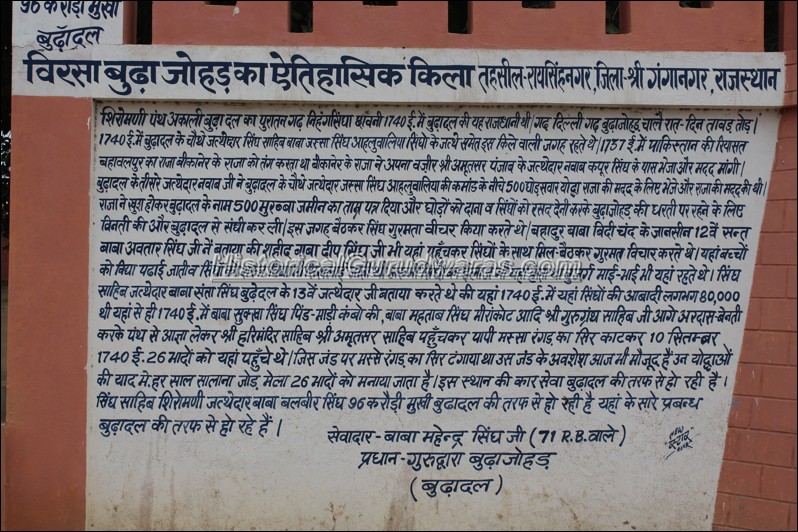 96 करोड़ी मुखी
बुढ़ॉदल
विरसा बुढ़ा जोहड़ का ऐतिहासिक किला तहसील-रायसिंहनगर, जिला-श्री गंगानगर, राजस्थान
शिरोमणी पंथ अकाली बुढा दल का पुरातन गढ निहंगसिंघा छावनी 1740 ई. में बुढ़ादल की यह राजधानी थी। गढ दिल्ली गढ़ बुढ़ाजोहड़ चाले रात-दिन तावड़ तोड़।
1740 ई. में बुढ़ादल के चौथे जत्थेदार सिंह साहिब बाबा जस्सा सिंघ आहलुवालिया सिंघो के जत्थे समेत इस किले वाली जगह रहते थे। 1757 ई. में पाकिस्तान की रियासत
बहावलपुर का राजा बीकानेर के राजा को तंग करता था बीकानेर के राजा ने अपना वजीर श्री अमृतसर पंजाब के जत्थेदार नवाब कपूर सिंघ के पास भेजा और मदद मांगी।
बुढ़ादल के तीसरे जत्थेदार नवाब जी ने बुढ़ादल के चौथे जत्थेदार जस्सा सिंघ आहलुवालिया की कमांड के नीचे 500 घोड़ सवार योद्धा राजा की मदद के लिए भेजे और राजा की मदद की थी।
राजा ने खुश होकर बुढ़ादल के नाम 500 मुरब्बा जमीन का ताम्र पत्र दिया और घोड़ों को दाना व सिंघों को रसद देनी करके बुढ़ाजोहड़ की धरती पर रहने के लिए
विनती की और बुढ़ादल से संधी कर ली। इस जगह बैठकर सिंघ गुरमत्ता वीचार किया करते थे। बहादुर बाबा बिदी चंद के जानशीन 12वें सन्त
बाबा अवतार सिंघ जी ने बताया की शहीद बाबा दीप सिंघ जी भी यहां पहुँचकर सिंघों के साथ मिल-बैठकर गुरमत्त विचार करते थे। यहां बच्चों
को विद्या पढाई जाती व
HistoricalGurudwaras.com
माई-भाई भी यहां रहते थे। सिंघ
साहिब जत्थेदार बाबा संता सिंघ बुढेदल के 13वें जत्थेदार जी बताया करते थे की यहां 1740 ई. में यहां सिंघों की आबादी लगभग 80,000
थी यहां से ही 1740 ई. में बाबा सुक्खा सिंघ पिंड-माडी कंबो की, बाबा महताब सिंघ मीरांकोट आदि श्री गुरुग्रंथ साहिब जी आगे अरदास-बेनती
करके पंथ से आज्ञा लेकर श्री हरिमंदिर साहिब श्री अमृतसर साहिब पहुँचकर पापी मस्सा रंगड़ का सिर काटकर 10 सितम्बर
1740 ई. 26 भादों को यहां पहुँचे थे। जिस जंड पर मस्से रंगड़ का सिर टंगाया था उस जंड के अवशेश आज भी मौजूद हैं उन योद्धाओं
की याद मे. हर साल सालाना जोड़ मेला 26 भादों को मनाया जाता है। इस स्थान की कार सेवा बुढ़ादल की तरफ से हो रही है।
सिंघ साहिब शिरोमणी जत्थेदार बाबा बलबीर सिंघ 96 करोड़ी मुखी बुढ़ादल की तरफ से हो रही है यहां के सारे प्रबन्ध
बुढ़ादल की तरफ से हो रहे हैं।
सेवादार-बाबा महेन्द्र सिंघ जी (71 R.B. वाले)
प्रधान-गुरुद्वारा बुढ़ाजोहड़
(बुढ़ादल)